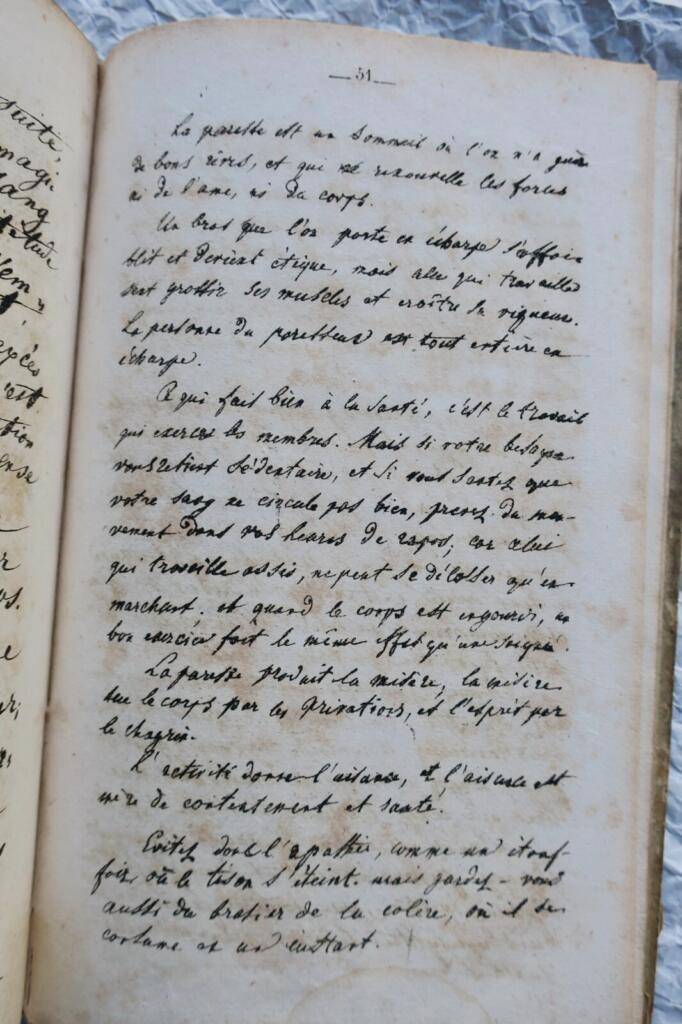 suite,
magi
sang
titude
epcès
c'est
tion
ense
— 51 —
La paresse est un sommeil où l'on n'a guère
de bons rêves, et qui ne renouvelle les forces
ni de l'ame, ni du corps.
Un bras que l'on porte en écharpe s'affoi-
blit et devient étique, mais celui qui travaille
sent grossir ses muscles et croître sa vigueur.
La personne du paresseux est tout entière en
écharpe.
Ce qui fait bien à la santé, c'est le travail
qui exerce les membres. Mais si votre besogne
vous retient sédentaire, et si vous sentez que
votre sang ne circule pas bien, prenez du mou-
vement dans vos heures de repos; car celui
qui travaille assis, ne peut se délasser qu'en
marchant. et quand le corps est engourdi, un
bon exercice fait le même effet qu'une
La paresse produit la misère, la misère
tue le corps par les privations, et l'esprit par
le chagrin.
L'activité donne l'aisance, et l'aisance est
mère de contentement et santé.
Evitez donc l'apathie, comme un étouf-
foir, où le tison s'éteint. mais gardez-vous
aussi du brasier de la colère, où il se
consume en un instant.